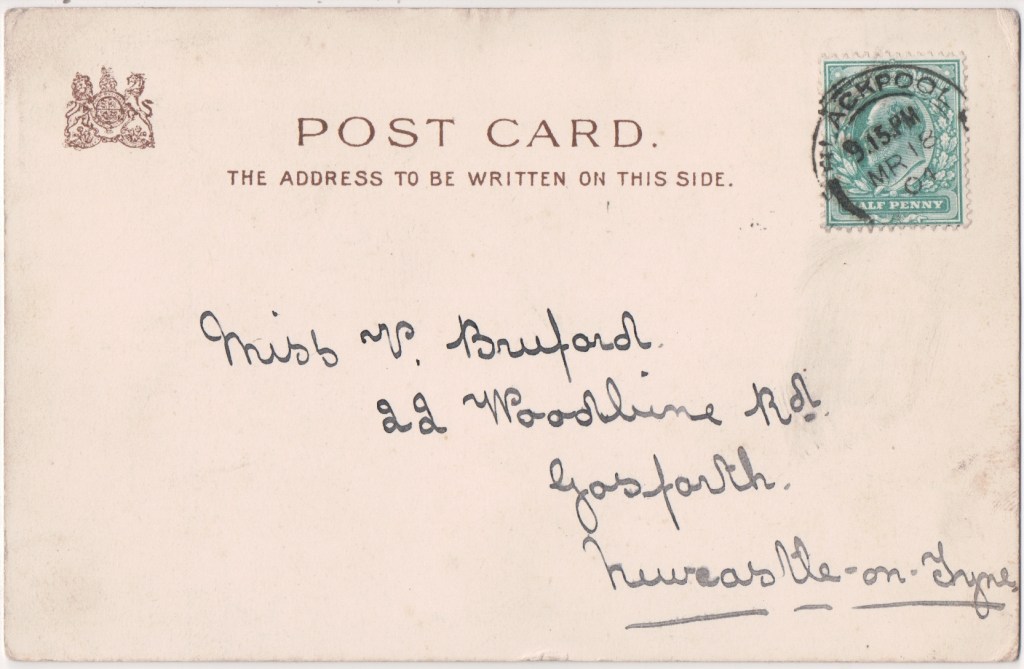 POST CARD.
THE ADDRESS TO BE WRITTEN ON THIS SIDE.
BLACKPOOL
9.15.PM
MR 18
04
HALF PENNY
Miss V. Bruford.
22 Woodbine Rd.
Gosforth.
Newcastle-on-Tyne.